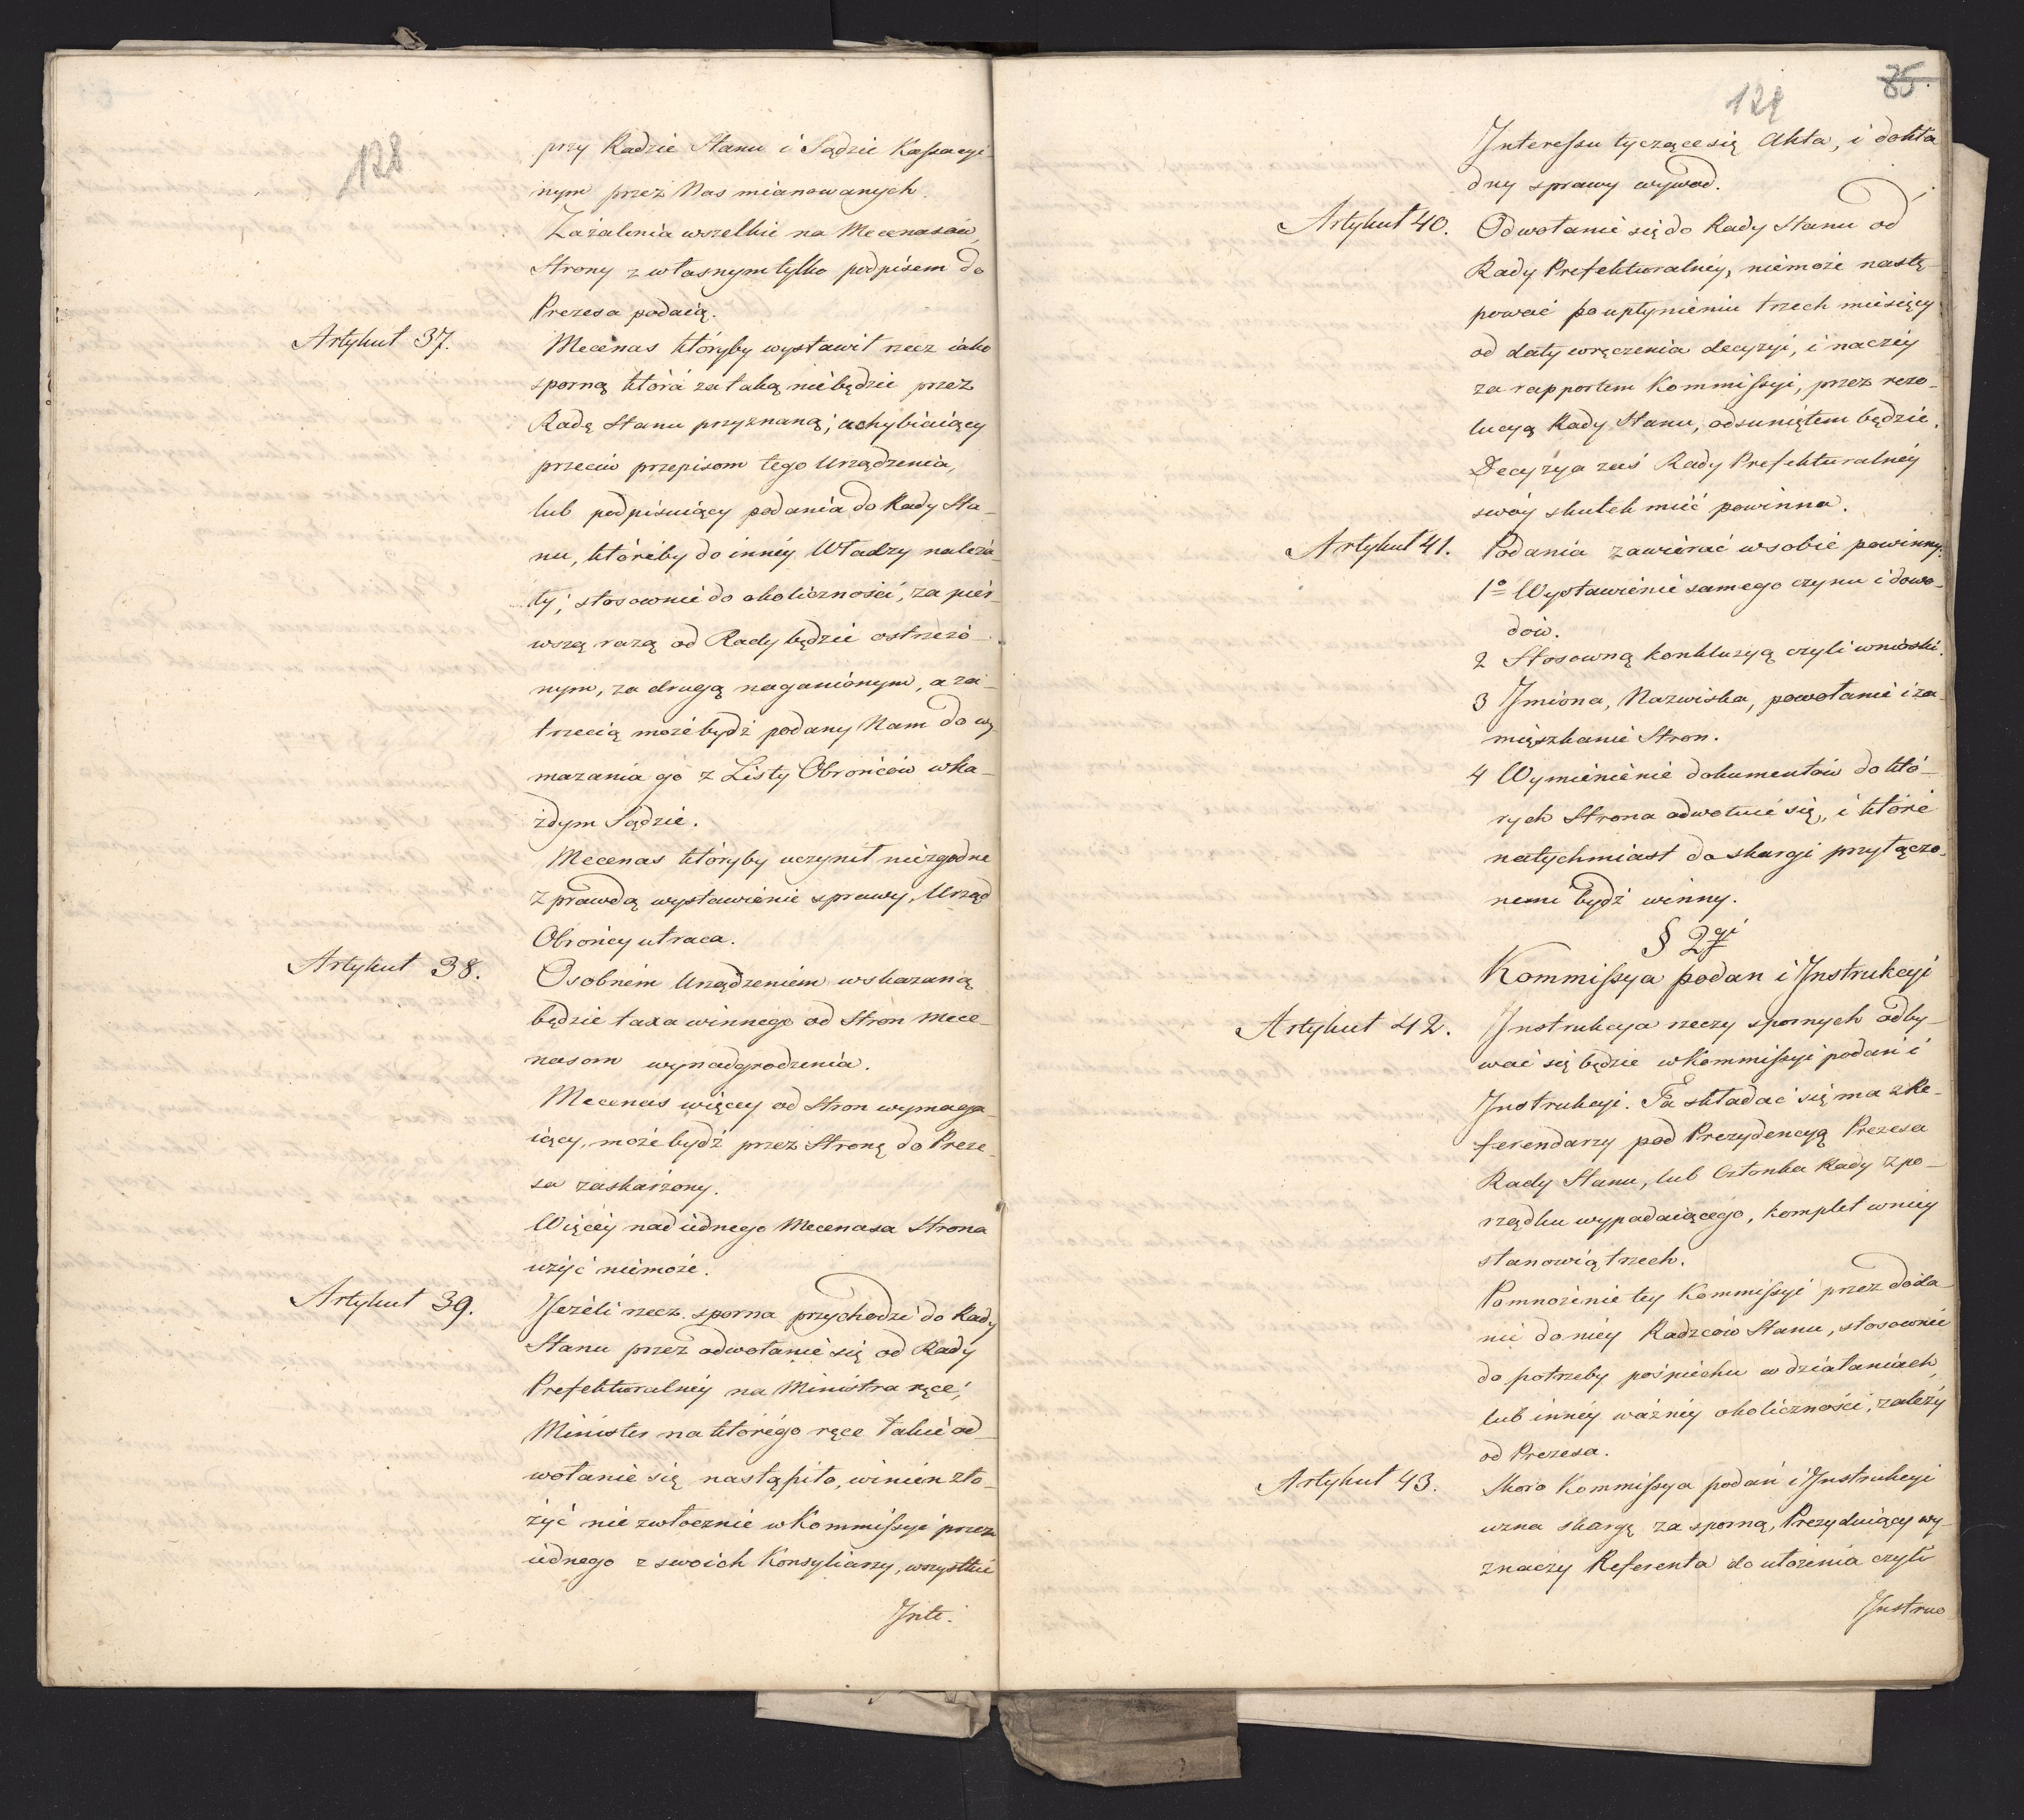 128
przy Radzie Stanu i Sądzie Kassacyi-
nym przez Nas mianowanych.
Zażalenia wszelkie na Mecenasów,
Strony z własnym tylko podpisem do
Prezesa podaią.
Artykuł 37.
Mecenas któryby wystawił rzecz iako
sporną która za taką niebędzie przez
Radę Stanu przyznaną; uchybiaiący
przeciw przepisom tego Urządzenia,
lub podpisuiący podania do Rady Sta-
nu, któreby do innéy Władzy należa-
ły; stosownie do okoliczności, za pier-
wszą razą od Rady będzie ostrzeżo-
nym, za drugą naganionym, a za
trzecią może bydź podany Nam do wy-
mazania go z Listy Obrońców w ka-
żdym Sądzie.
Mecenas któryby uczynił niezgodne
z prawdą wystawienie sprawy, Urząd
Obrońcy utraca.
Artykuł 38.
Osobném Urządzeniem wskazaną
będzie taxa winnego od Stron Mece-
nasom wynadgrodzenia.
Mecenas więcey od Stron wymaga-
iący, może bydź przez Stronę do Preze-
sa zaskarżony.
Więcéy nad iednego Mecenasa Strona
użyć niemoże.
Artykuł 39.
Jeżeli rzecz sporna przychodzi do Rady
Stanu przez odwołanie się od Rady
Prefekturalnéy na Ministra ręce;
Minister na którégo ręce takie od-
wołanie się nastąpiło, winien zło-
żyć nie zwłocznie w Kommissyi przez
iednego z swoich Konsyliarzy, wszystkie
Inte.
129
85.
Interessu tyczące się Akta, i dokła
dny sprawy wywod.
Artykuł 40.
Odwołanie się do Rady Stanu od
Rady Prefekturalnéy, niemoże nastę-
pować po upłynieniu trzech miesięcy
od daty wręczenia decyzyi, inaczéy
za rapportem Kommissyi, przez rezo-
lucyą Rady Stanu, odsuniętem będzie,
Decyzya zaś Rady Prefekturalnéy
swóy skutek mieć powinna.
Artykuł 41.
Podania zawierać w sobie powinny:
1o Wystawienie samego czynu i dowo-
dów.
2 Stosowną konkluzyą czyli wnioski.
3 Imiona, Nazwiska, powołanie i za-
mięszkanie Stron.
4 Wymienienie dokumentów do któ-
rych Strona odwołuie się, i które
natychmiast do skargi przyłączo-
nemi bydź winny.
§ 2gi
Kommissya podan i Instrukcyi
Artykuł 42.
Instrukcya rzeczy spornych odby-
wać się będzie w Kommissyi podań i
Instrukcyi. Ta składać się ma z Re-
ferendarzy pod Prezydencyą Prezesa
Rady Stanu, lub Członka Rady z po-
rządku wypadaiącego, komplet w niey
stanowią trzech.
Pomnożenie tey Kommissyi przez doda-
nie do niéy Radzców Stanu, stosownie
do potrzeby pośpiechu w działaniach,
lub innéy ważnéy okoliczności, zależy
od Prezesa.
Artykuł 43.
Skoro Kommissya podań i Instrukcyi
uzna skargę za sporną, Prezyduiący wy-
znaczy Referenta do ułożenia czyli
Instruc